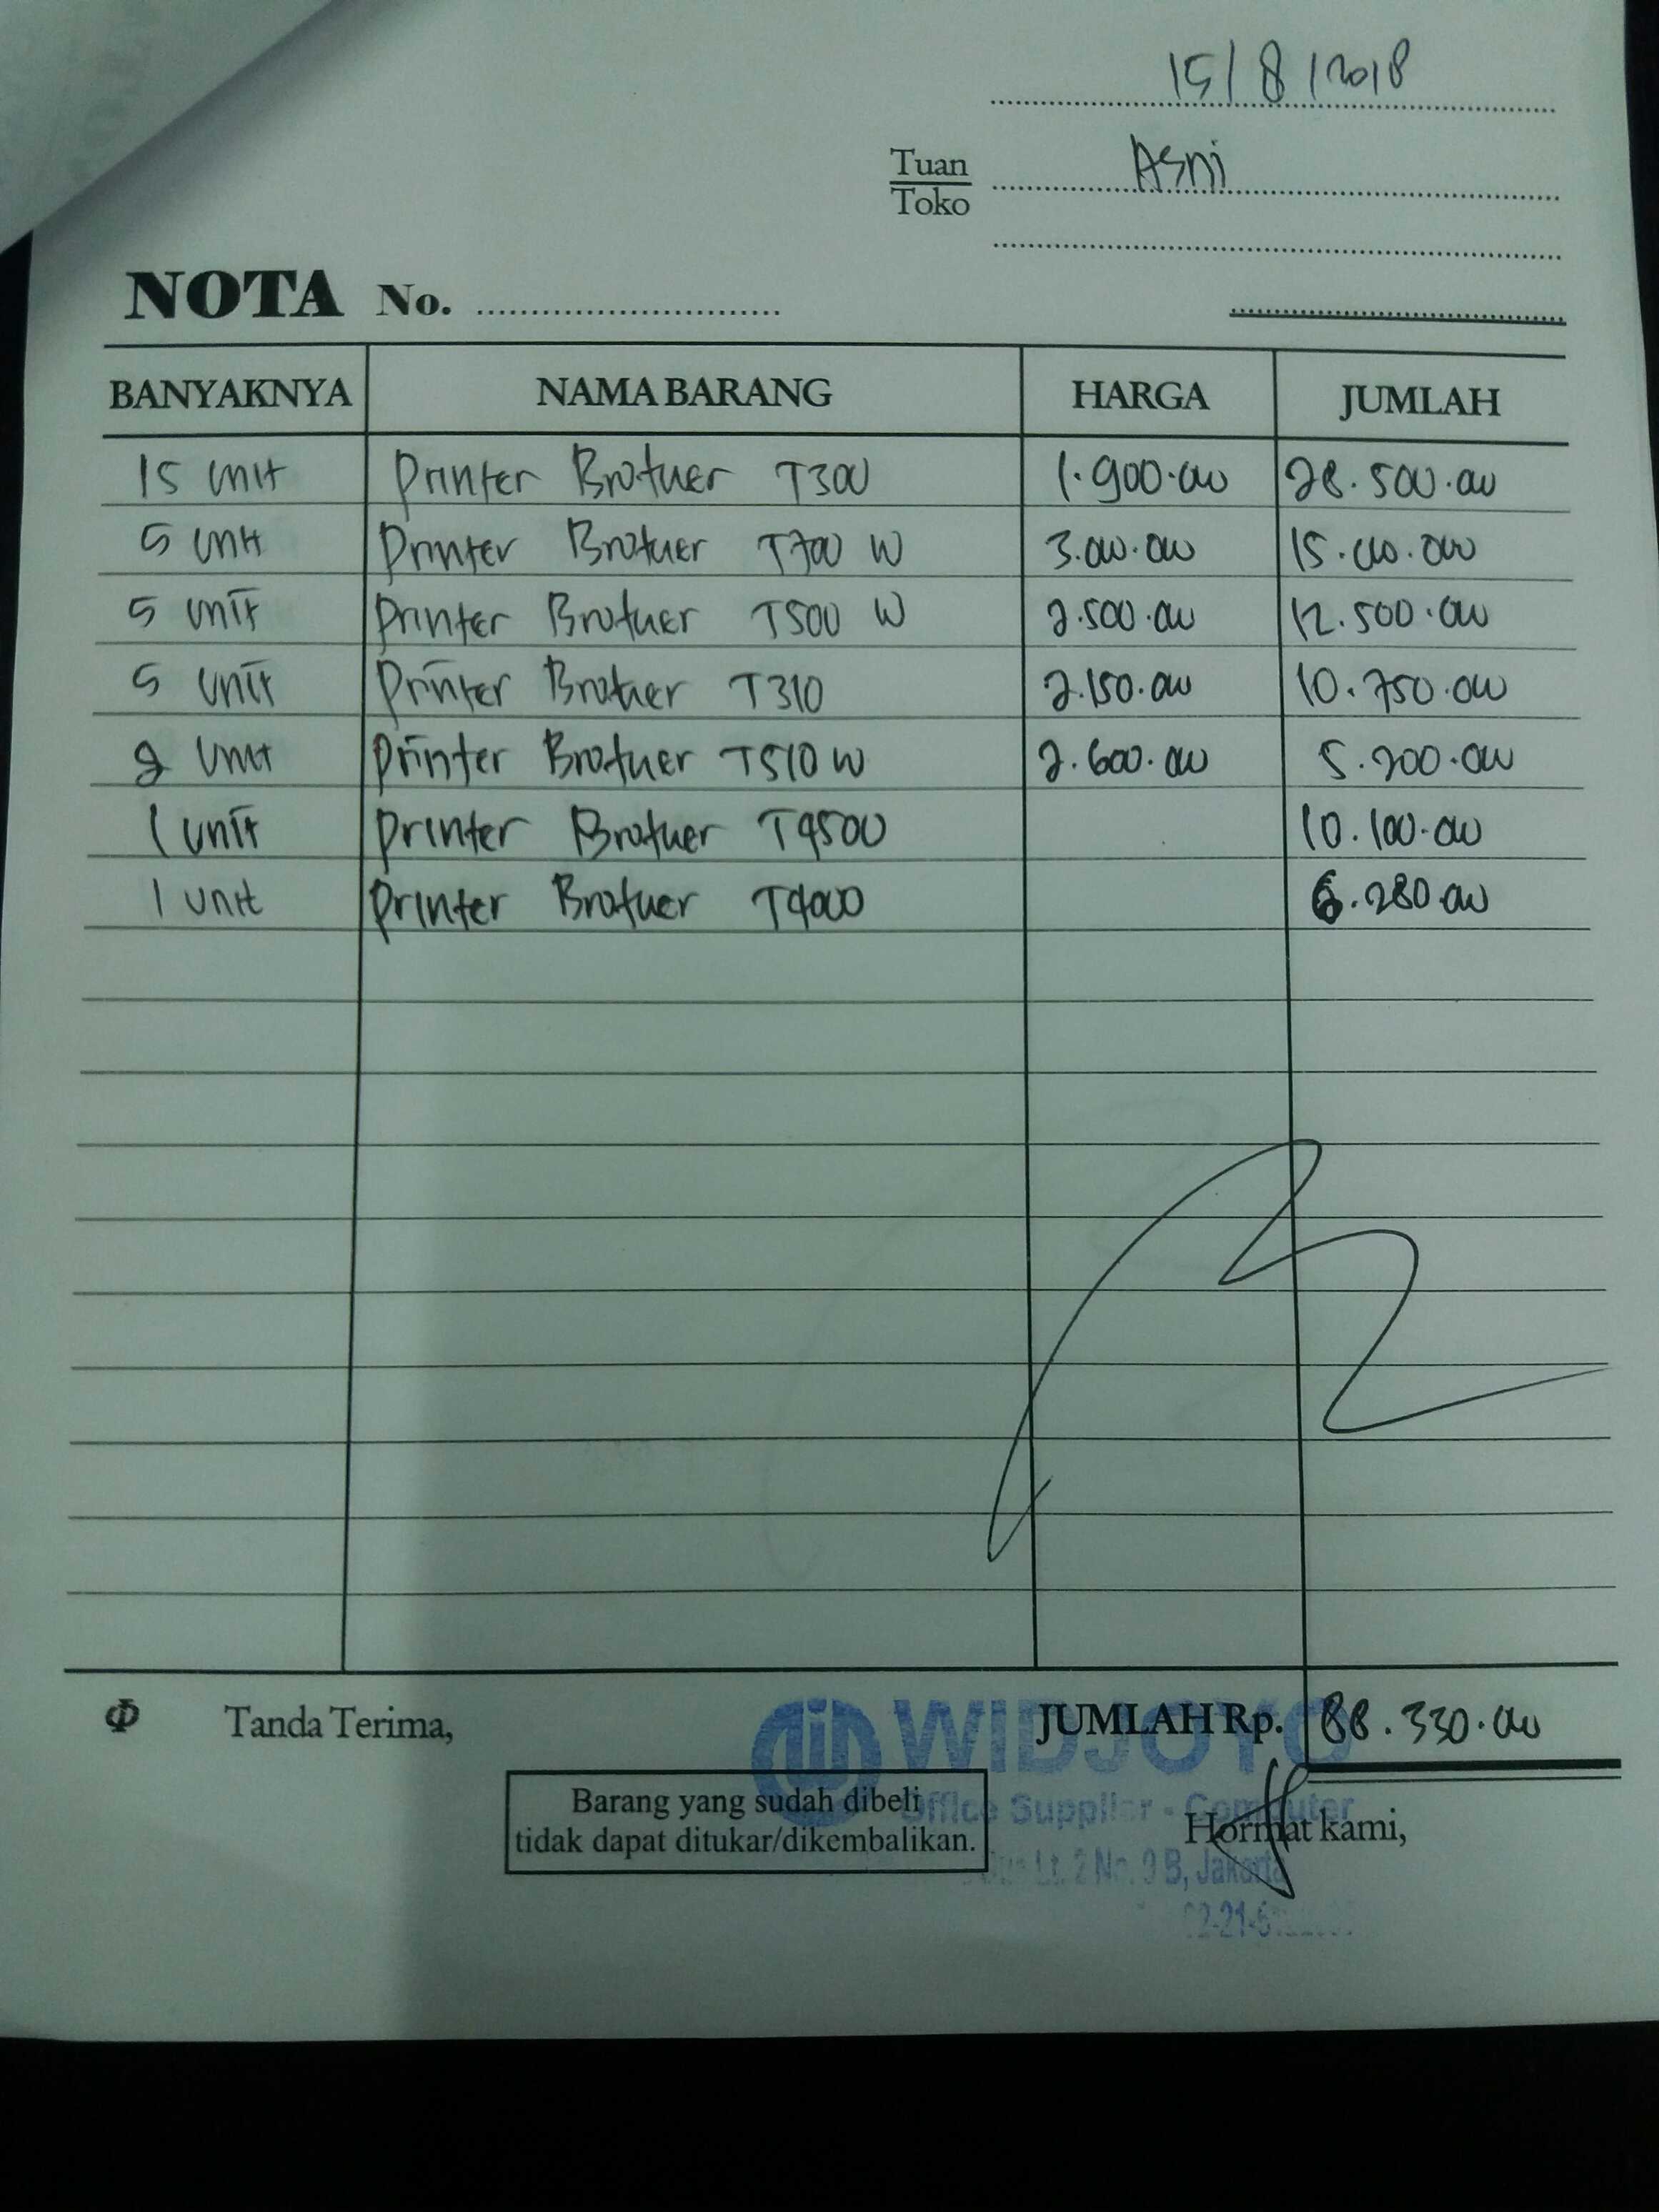 15/8/2018
Tuan Asni
Toko
NOTA No.
BANYAKNYA NAMA BARANG HARGA JUMLAH
15 unit Printer Brother T300 1.900.000 28.500.000
5 unit Printer Brother T700 W 3.000.000 15.000.000
5 unit Printer Brother T500 W 2.500.000 12.500.000
5 unit Printer Brother T310 2.150.000 10.750.000
2 unit Printer Brother T510 W 2.600.000 5.200.000
1 unit Printer Brother T4500 10.100.000
1 unit Printer Brother T4000 6.280.000
Tanda Terima, JUMLAH Rp. 88.330.000
WIDJOYO
Barang yang sudah dibeli
tidak dapat ditukar/dikembalikan.
Office Supplier - Computer
Hormat kami,
Lt. 2 No. 9 B, Jakarta